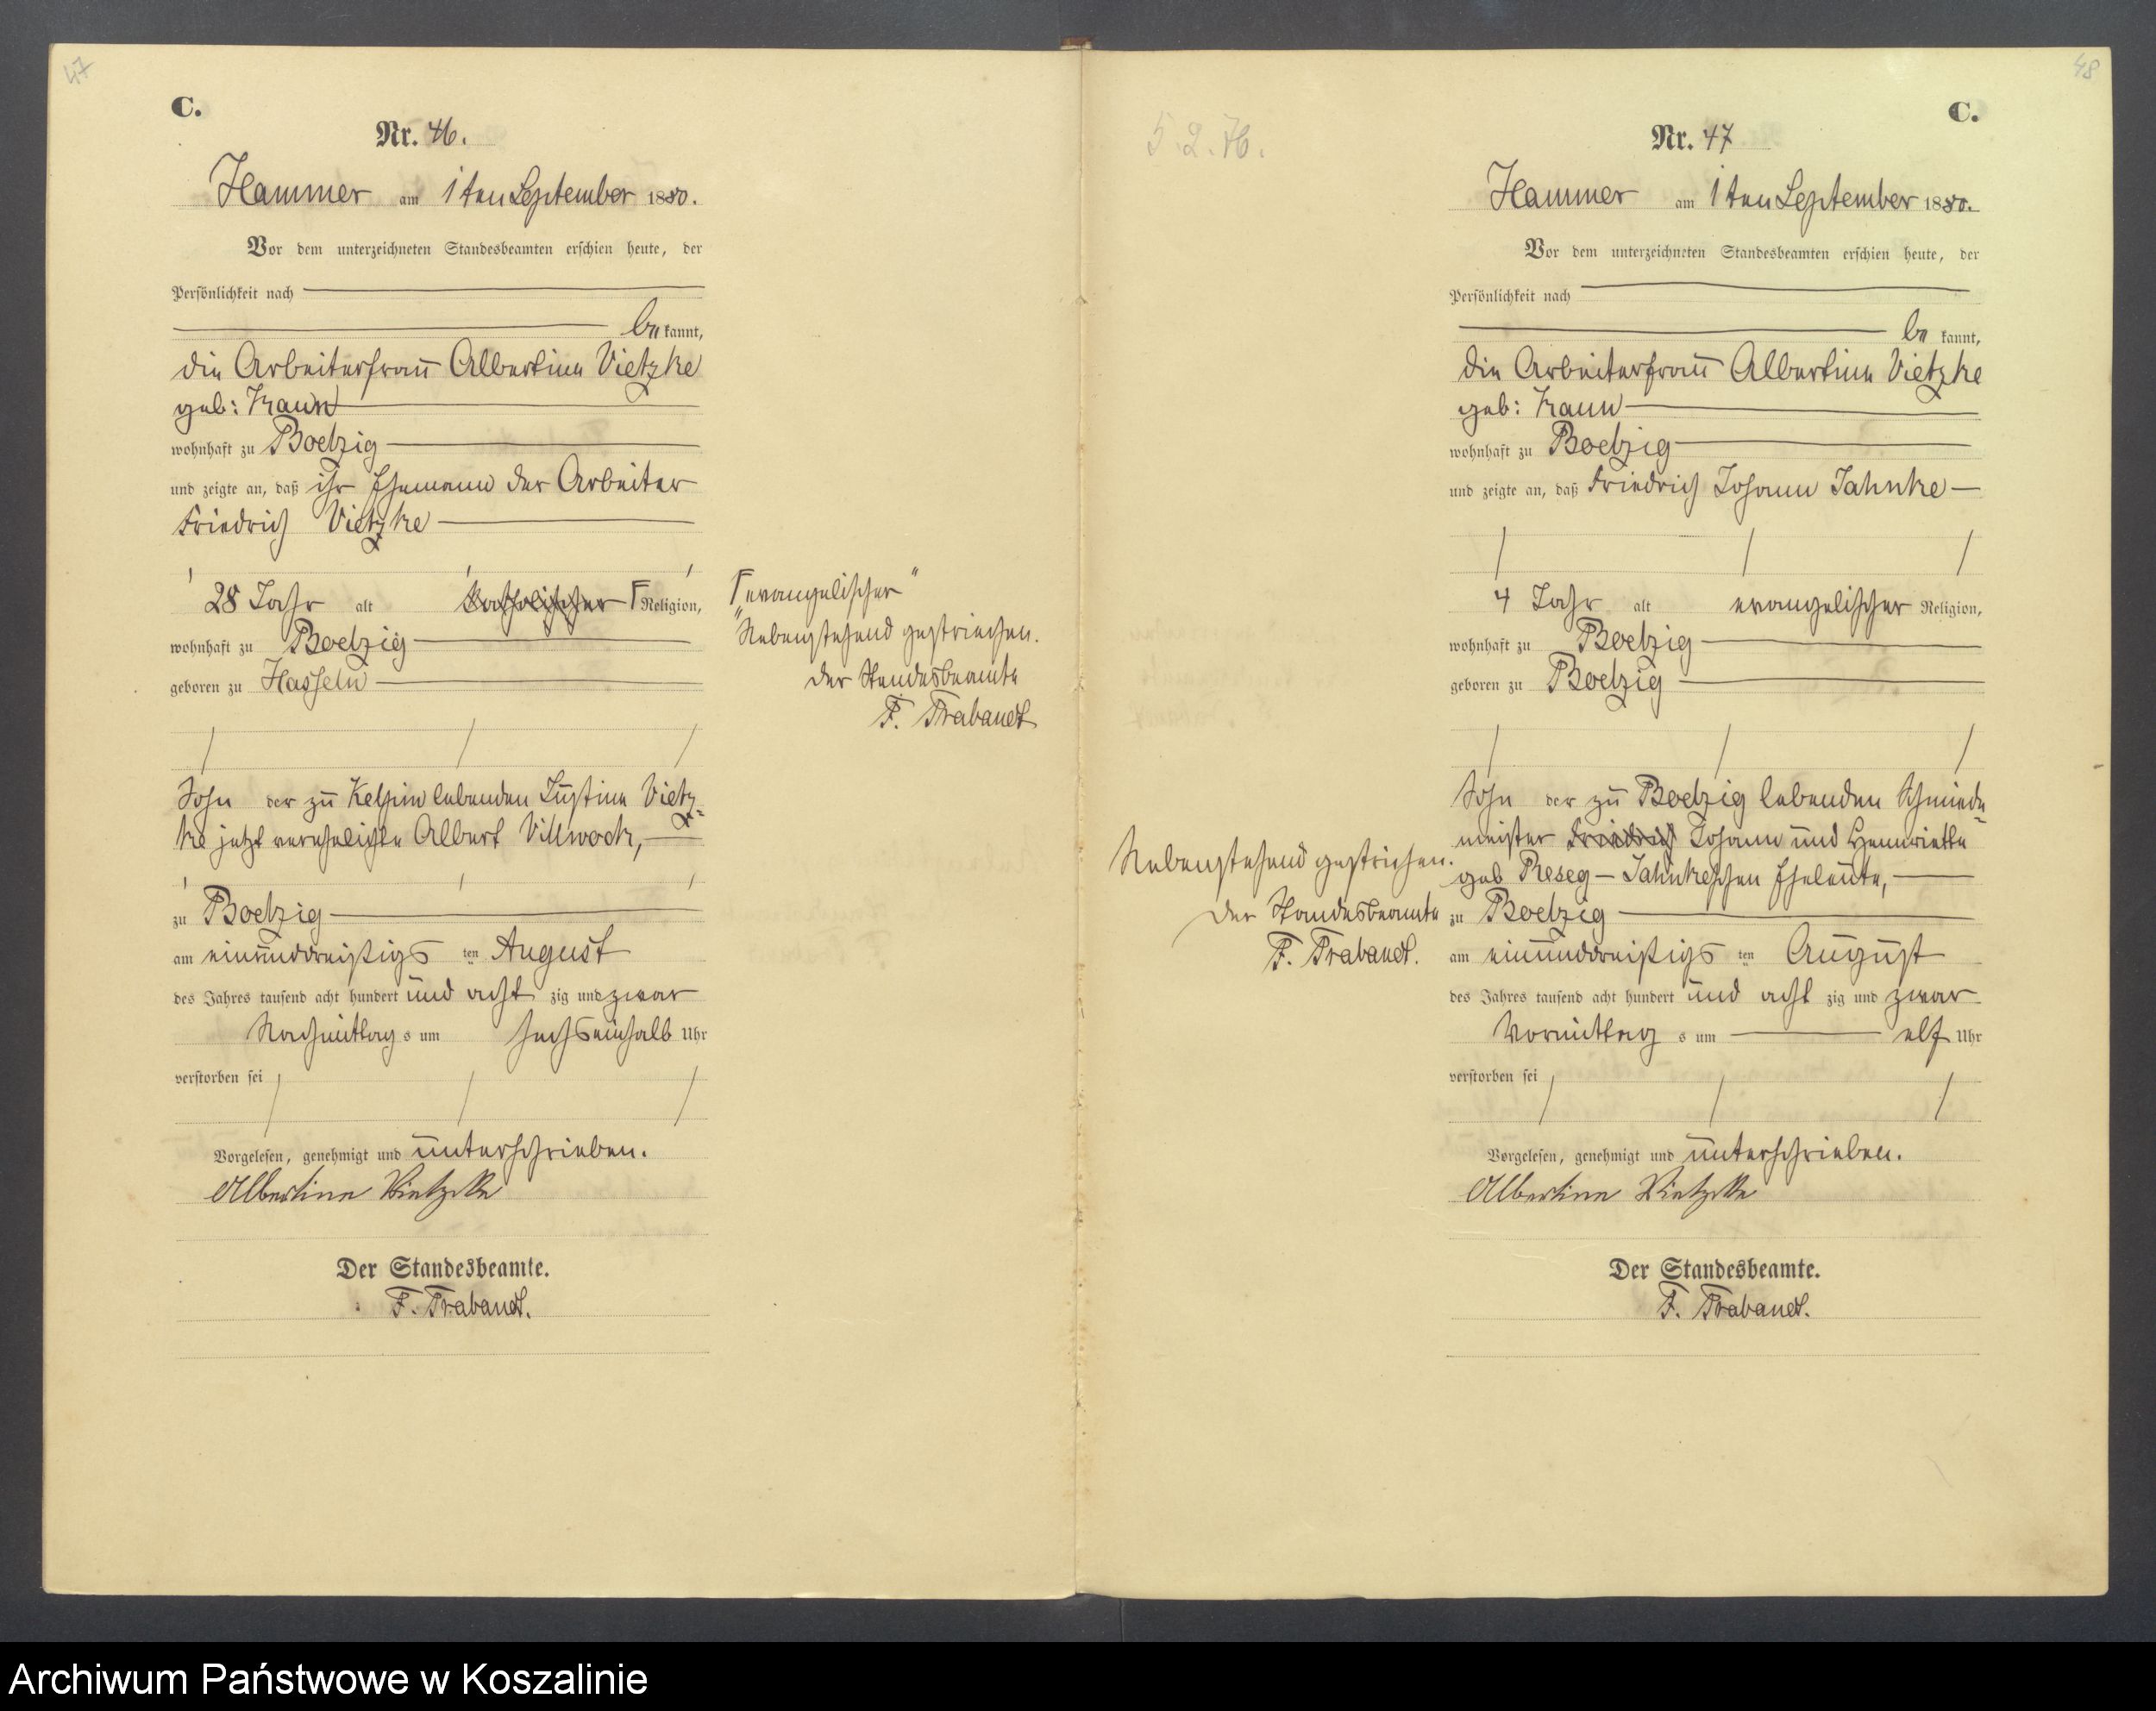 47
C.
Nr. 46.
Hammer am 1ten September 1880.
Vor dem unterzeichneten Standesbeamten erschien heute, der
Persönlichkeit nach
be kannt,
die Arbeiterfrau Albertine Vietzke
geb: Krann
wohnhaft zu Boetzig
und zeigte an, daß ihr Ehemann der Arbeiter
Friedrich Vietzke
28 Jahr alt katholischer Religion,
wohnhaft zu Boetzig
geboren zu Hasseln
Sohn der zu Kelpin lebenden Justine Vietz-
ke jetzt verehelichte Albert Villwock,
zu Boetzig
am einunddreißigs ten August
des Jahres tausend acht hundert und acht zig und zwar
Nachmittag s um sechseinhalb Uhr
verstorben sei
Vorgelesen, genehmigt und unterschrieben.
Albertine Vietzke
Der Standesbeamte.
F. Trabandt.
"evangelischer"
"Nebenstehend gestrichen.
Der Standesbeamte
F. Trabandt
48
5.2.76.
C.
Nr. 47
Hammer am 1ten September 1880.
Vor dem unterzeichneten Standesbeamten erschien heute, der
Persönlichkeit nach
be kannt,
die Arbeiterfrau Albertine Vietzke
geb: Krann
wohnhaft zu Boetzig
und zeigte an, daß Friedrich Johann Jahnke
4 Jahr alt evangelischer Religion,
wohnhaft zu Boetzig
geboren zu Boetzig
Sohn der zu Boetzig lebenden Schmiede-
meister Friedrich Johann und Hennriette
geb Reseg - Jahnkeschen Eheleute,
zu Boetzig
am einunddreißigs ten August
des Jahres tausend acht hundert und acht zig und zwar
Vormittag s um elf Uhr
verstorben sei
Vorgelesen, genehmigt und unterschrieben.
Albertine Vietzke
Der Standesbeamte.
F. Trabandt.
Nebenstehend gestrichen.
Der Standesbeamte
F. Trabandt.
Archiwum Państwowe w Koszalinie